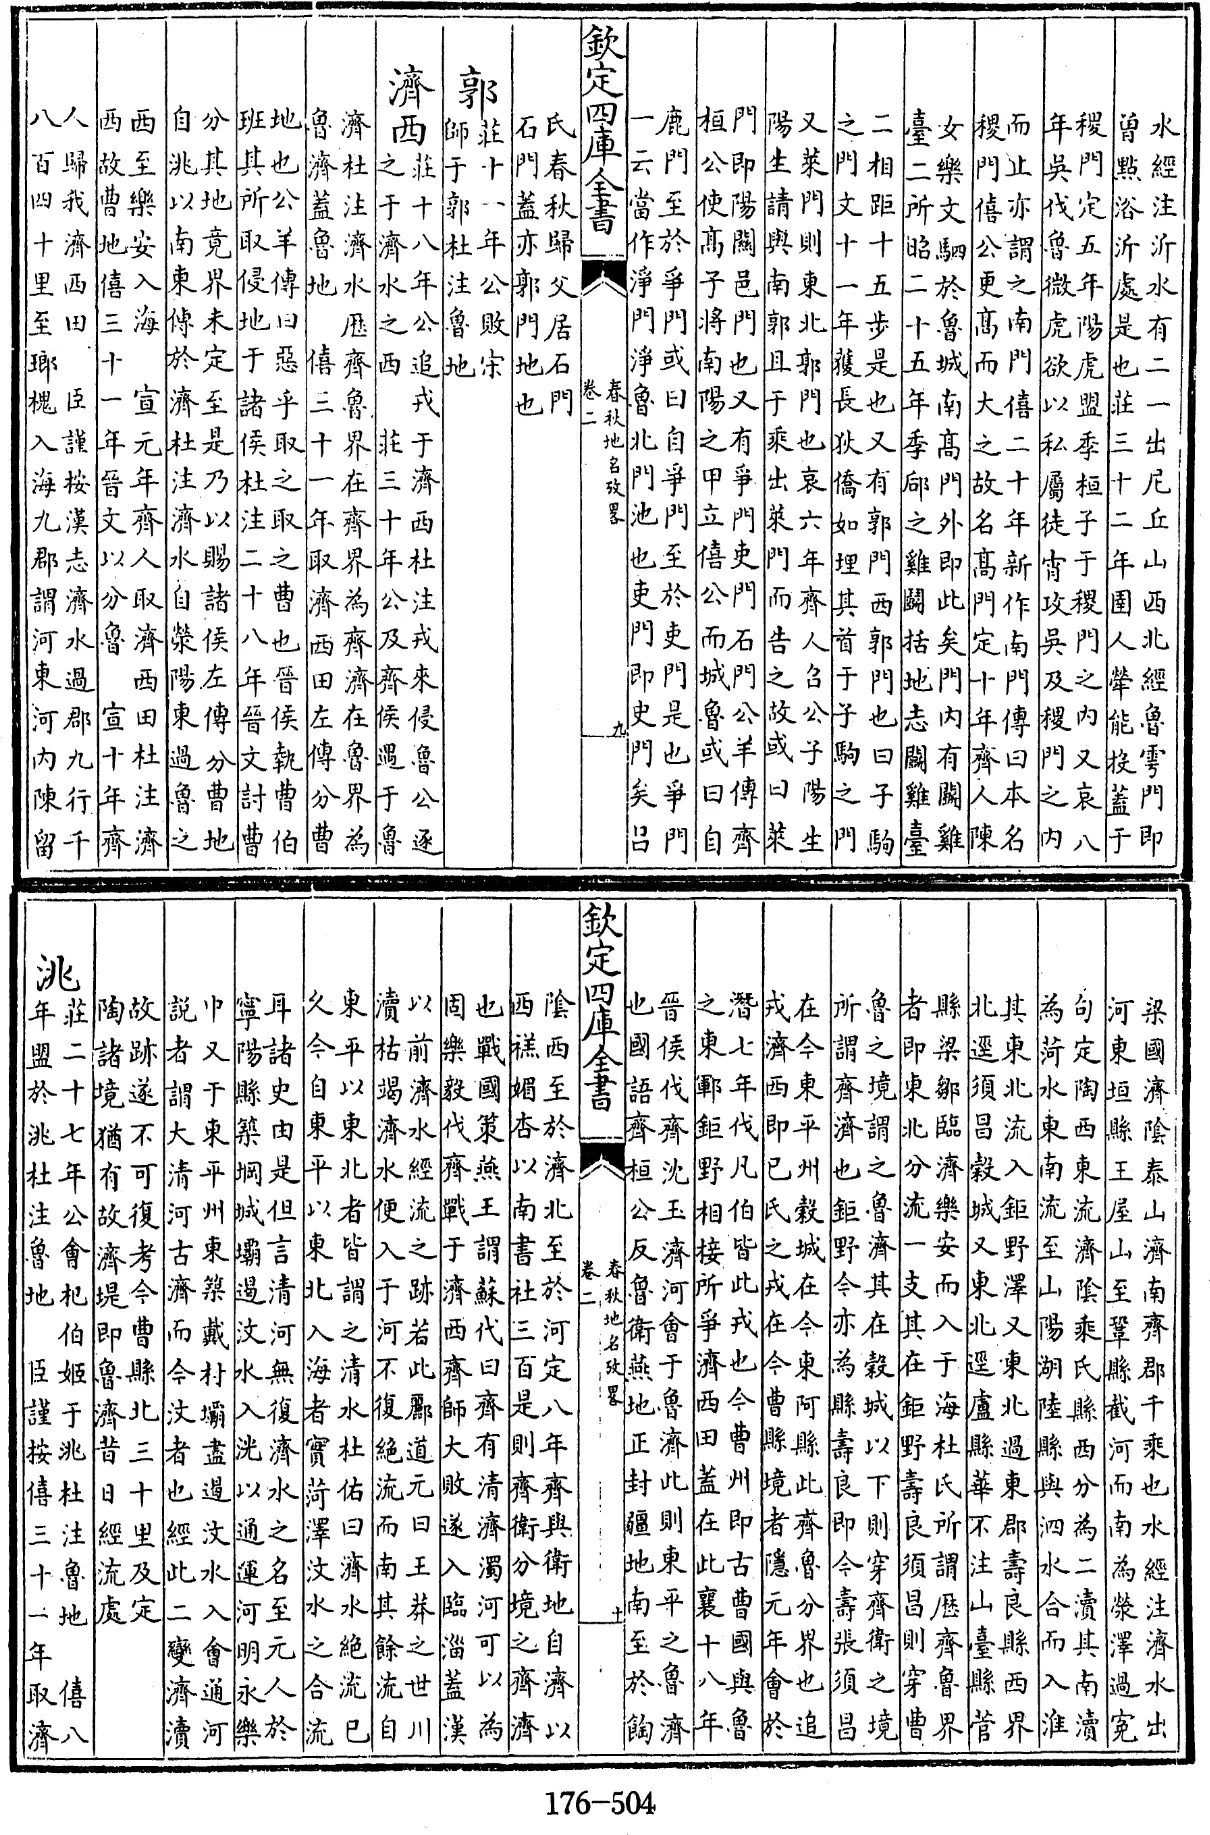 水經注沂水有二一出尼丘山西北經魯雩門即
曾點浴沂處是也莊三十二年圉人犖能投蓋于
稷門定五年陽虎盟季桓子于稷門之內又哀八
年吳伐魯微虎欲以私屬徒宵攻吳及稷門之內
而止亦謂之南門僖二十年新作南門傳曰本名
稷門僖公更高而大之故名高門定十年齊人陳
女樂文駟於魯城南高門外即此矣門內有鬭雞
臺二所昭二十五年季郈之雞鬭括地志鬭雞臺
二相距十五步是也又有郭門西郭門也曰子駒
之門文十一年獲長狄僑如埋其首于子駒之門
又萊門則東北郭門也哀六年齊人召公子陽生
陽生請與南郭且于乘出萊門而告之故或曰萊
門即陽關邑門也又有爭門吏門石門公羊傳齊
桓公使高子將南陽之甲立僖公而城魯或曰自
鹿門至於爭門或曰自爭門至於吏門是也爭門
一云當作淨門淨魯北門池也吏門即史門矣呂
欽定四庫全書
春秋地名攷畧
卷二
九
氏春秋歸父居石門
石門蓋亦郭門地也
郭
莊十一年公敗宋
師于郭杜注魯地
濟西
莊十八年公追戎于濟西杜注戎來侵魯公逐
之于濟水之西 莊三十年公及齊侯遇于魯
濟杜注濟水歷齊魯界在齊界為齊濟在魯界為
魯濟蓋魯地 僖三十一年取濟西田左傳分曹
地也公羊傳曰惡乎取之取之曹也晉侯執曹伯
班其所取侵地于諸侯杜注二十八年晉文討曹
分其地竟界未定至是乃以賜諸侯左傳分曹地
自洮以南東傳於濟杜注濟水自滎陽東過魯之
西至樂安入海 宣元年齊人取濟西田杜注濟
西故曹地僖三十一年晉文以分魯 宣十年齊
人歸我濟西田 臣謹按漢志濟水過郡九行千
八百四十里至瑯槐入海九郡謂河東河內陳留
梁國濟陰泰山濟南齊郡千乘也水經注濟水出
河東垣縣王屋山至鞏縣截河而南為滎澤過寃
句定陶西東流濟陰乘氏縣西分為二瀆其南瀆
為菏水東南流至山陽湖陸縣與泗水合而入淮
其東北流入鉅野澤又東北過東郡壽良縣西界
北逕須昌穀城又東北逕盧縣華不注山臺縣菅
縣梁鄒臨濟樂安而入于海杜氏所謂歷齊魯界
者即東北分流一支其在鉅野壽良須昌則穿曹
魯之境謂之魯濟其在穀城以下則穿齊衛之境
所謂齊濟也鉅野今亦為縣壽良即今壽張須昌
在今東平州穀城在今東阿縣此齊魯分界也追
戎濟西即已氏之戎在今曹縣境者隱元年會於
潛七年伐凡伯皆此戎也今曹州即古曹國與魯
之東鄆鉅野相接所爭濟西田蓋在此襄十八年
晉侯伐齊沈玉濟河會于魯濟此則東平之魯濟
也國語齊桓公反魯衛燕地正封疆地南至於餡
欽定四庫全書
春秋地名攷畧
卷二
十
陰西至於濟北至於河定八年齊與衛地自濟以
西禚媚杏以南書社三百是則齊衛分境之齊濟
也戰國策燕王謂蘇代曰齊有清濟濁河可以為
固樂毅伐齊戰于濟西齊師大敗遂入臨淄蓋漢
以前濟水經流之跡若此酈道元曰王莽之世川
瀆枯竭濟水便入于河不復絕流而南其餘流自
東平以東北者皆謂之清水杜佑曰濟水絕流已
久今自東平以東北入海者實菏澤汶水之合流
耳諸史由是但言清河無復濟水之名至元人於
寧陽縣築堈城壩遏汶水入洸以通運河明永樂
巾又于東平州東築戴村壩盡遏汶水入會通河
說者謂大清河古濟而今汶者也經此二變濟瀆
故跡遂不可復考今曹縣北三十里及定
陶諸境猶有故濟堤即魯濟昔日經流處
洮
莊二十七年公會杞伯姬于洮杜注魯地 僖八
年盟於洮杜注魯地 臣謹按僖三十一年取濟
176-504